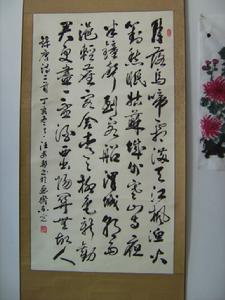 月落烏啼霜滿天江楓漁火
對愁眠姑蘇城外寒山寺夜
半鐘聲到客船渭城朝雨
浥輕塵客舍青青柳色新勸
君更盡一杯酒西出陽關無故人
唐詩二首丁亥冬